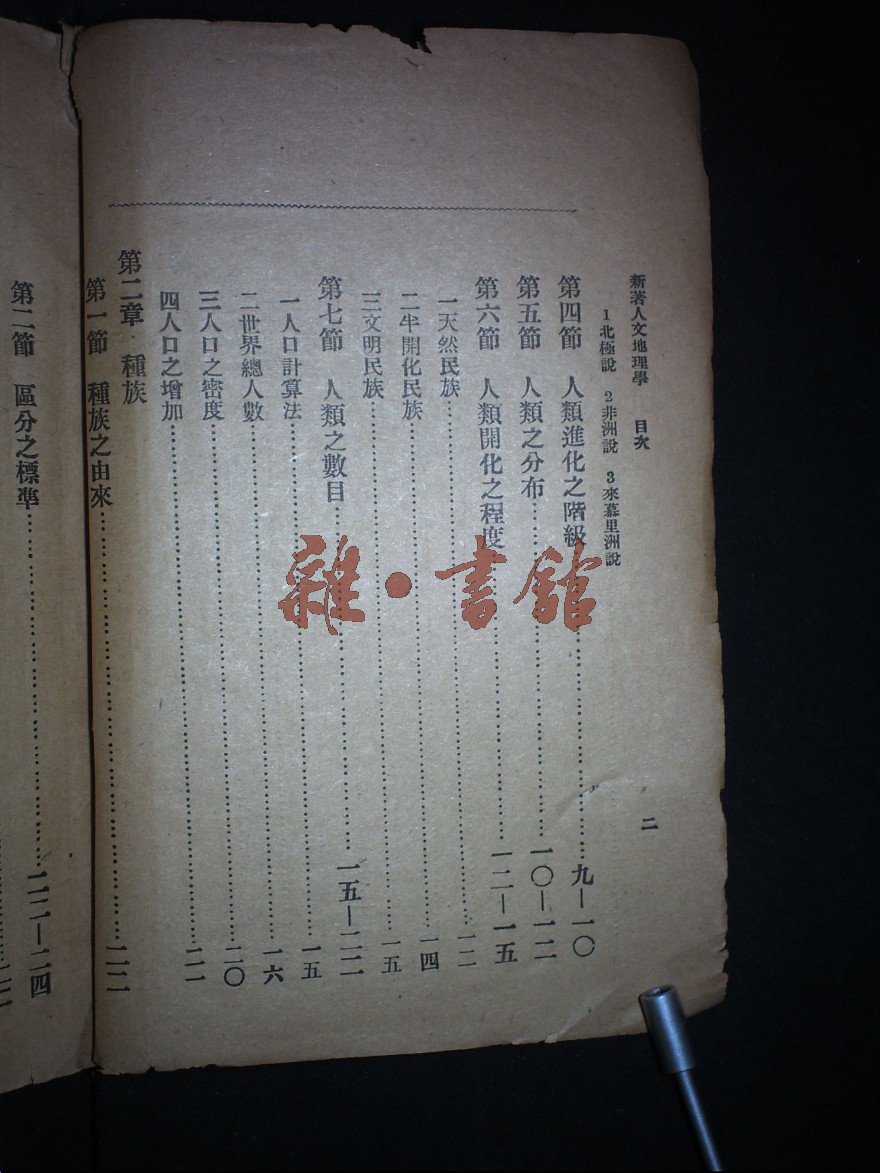 新著人文地理學 目次 二
1北極說 2非洲說 3來慕里洲說
第四節 人類進化之階級……九—一〇
第五節 人類之分布……一〇—一二
第六節 人類開化之程度……一二—一五
一天然民族……一二
二半開化民族……一四
三文明民族……一五
第七節 人類之數目……一五—二二
一人口計算法……一五
二世界總人數……一六
三人口之密度……二〇
四人口之增加……二一
第二章 種族
第一節 種族之由來……二二
第二節 區分之標準……二二—二四
雜·書館